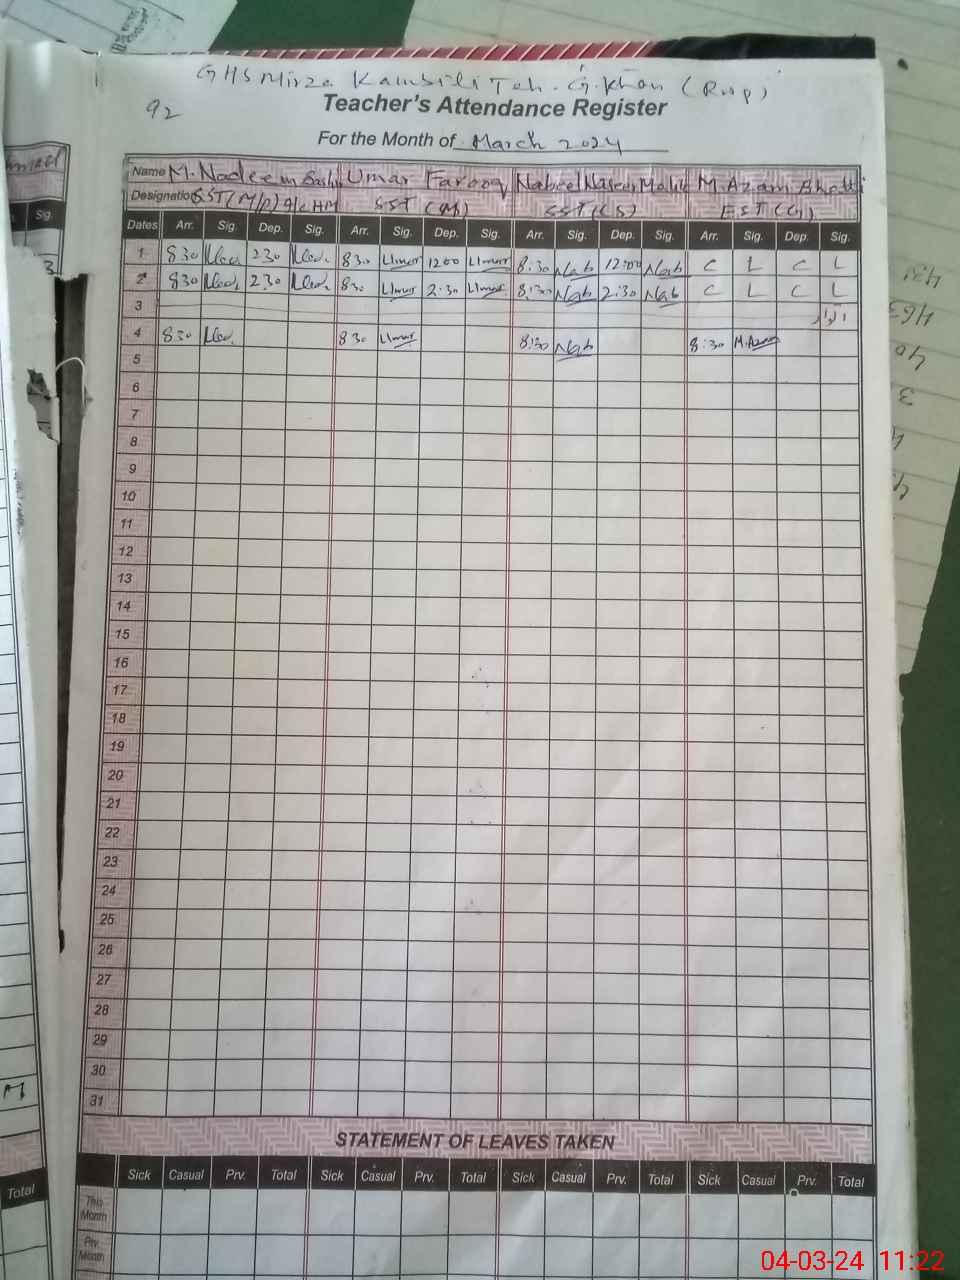 GHS Mirza Kambili Teh. G. Khan (Rwp)
92
Teacher's Attendance Register
For the Month of March 2024
Name M. Nadeem Bashir Umar Farooq Nabeel Naseer Malik M. Azam Bhatti
Designation SST(M/P) I/c HM SST (M) SST (CS) EST (G)
Dates Arr. Sig. Dep. Sig. Arr. Sig. Dep. Sig. Arr. Sig. Dep. Sig. Arr. Sig. Dep. Sig.
1 830 230 830 Umar 1200 Umar 8:30 Nab 12:00 Nab C L C L
2 830 230 830 Umar 2:30 Umar 8:30 Nab 2:30 Nab C L C L
3 اتوار
4 830 830 Umar 8:30 Nab 8:30 M.Azam
5
6
7
8
9
10
11
12
13
14
15
16
17
18
19
20
21
22
23
24
25
26
27
28
29
30
31
STATEMENT OF LEAVES TAKEN
Sick Casual Prv. Total Sick Casual Prv. Total Sick Casual Prv. Total Sick Casual Prv. Total
This Month
Prv. Month
Sig.
3
M
Total
431
463
40
3
04-03-24 11:22